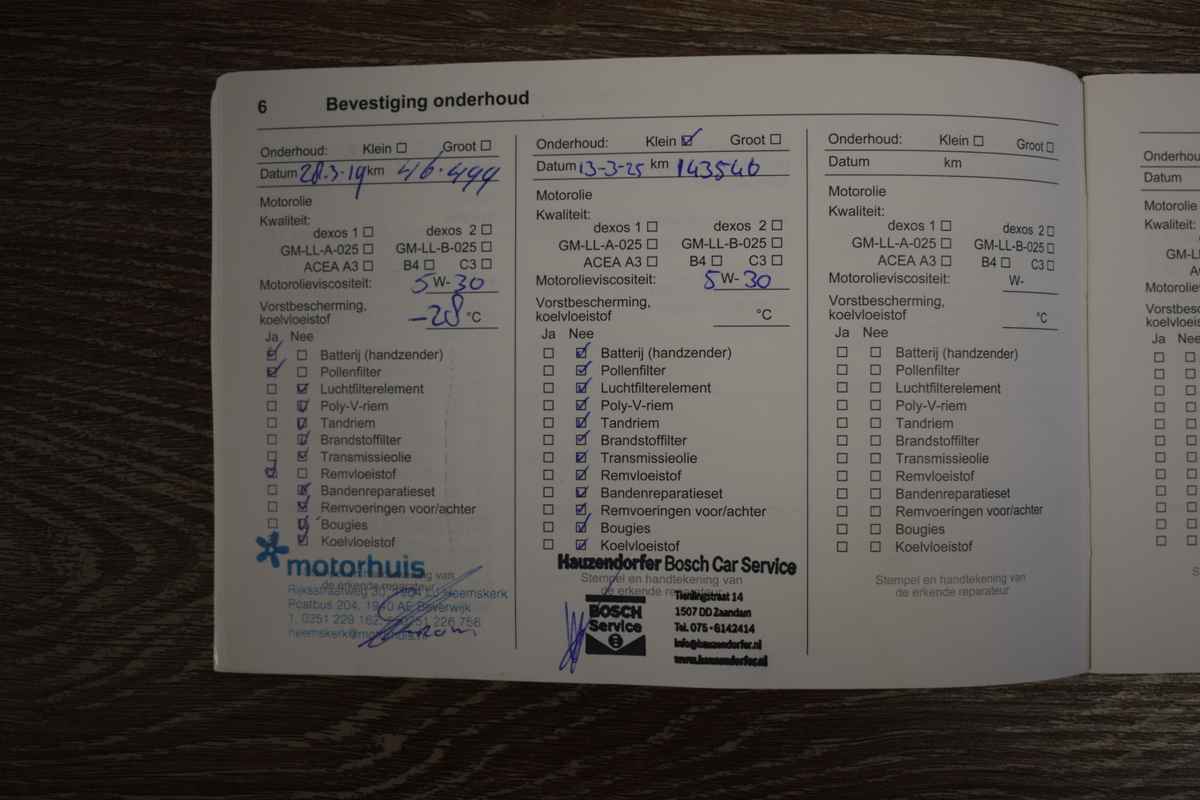 6 Bevestiging onderhoud
Onderhoud: Klein ☐ Groot ☐
Datum 28-3-19 km 46.499
Motorolie
Kwaliteit:
dexos 1 ☐ dexos 2 ☐
GM-LL-A-025 ☐ GM-LL-B-025 ☐
ACEA A3 ☐ B4 ☐ C3 ☐
Motorolieviscositeit: 5 W- 30
Vorstbescherming,
koelvloeistof -28 °C
Ja Nee
☑ ☐ Batterij (handzender)
☑ ☐ Pollenfilter
☐ ☑ Luchtfilterelement
☐ ☑ Poly-V-riem
☐ ☑ Tandriem
☐ ☑ Brandstoffilter
☐ ☑ Transmissieolie
☑ ☐ Remvloeistof
☐ ☑ Bandenreparatieset
☐ ☑ Remvoeringen voor/achter
☐ ☑ Bougies
☐ ☑ Koelvloeistof
motorhuis
de erkende reparateur
Rijksstraatweg 30, LJ Heemskerk
Postbus 204, 1940 AE Beverwijk
T. 0351 229 162 226 756
Onderhoud: Klein ☑ Groot ☐
Datum 13-3-25 km 143546
Motorolie
Kwaliteit:
dexos 1 ☐ dexos 2 ☐
GM-LL-A-025 ☐ GM-LL-B-025 ☐
ACEA A3 ☐ B4 ☐ C3 ☐
Motorolieviscositeit: 5 W- 30
Vorstbescherming,
koelvloeistof °C
Ja Nee
☐ ☑ Batterij (handzender)
☐ ☑ Pollenfilter
☐ ☑ Luchtfilterelement
☐ ☑ Poly-V-riem
☐ ☑ Tandriem
☐ ☑ Brandstoffilter
☐ ☑ Transmissieolie
☐ ☑ Remvloeistof
☐ ☑ Bandenreparatieset
☐ ☑ Remvoeringen voor/achter
☐ ☑ Bougies
☐ ☑ Koelvloeistof
Hauzendorfer Bosch Car Service
Stempel en handtekening van
de erkende reparateur
BOSCH
Service
14
1507 DD Zaandam
Tel. 075 - 6142414
info@hauzendorfer.nl
www.hauzendorfer.nl
Onderhoud: Klein ☐ Groot ☐
Datum km
Motorolie
Kwaliteit:
dexos 1 ☐ dexos 2 ☐
GM-LL-A-025 ☐ GM-LL-B-025 ☐
ACEA A3 ☐ B4 ☐ C3 ☐
Motorolieviscositeit: W-
Vorstbescherming,
koelvloeistof °C
Ja Nee
☐ ☐ Batterij (handzender)
☐ ☐ Pollenfilter
☐ ☐ Luchtfilterelement
☐ ☐ Poly-V-riem
☐ ☐ Tandriem
☐ ☐ Brandstoffilter
☐ ☐ Transmissieolie
☐ ☐ Remvloeistof
☐ ☐ Bandenreparatieset
☐ ☐ Remvoeringen voor/achter
☐ ☐ Bougies
☐ ☐ Koelvloeistof
Stempel en handtekening van
de erkende reparateur
Datum
Motorolie
Kwaliteit:
Ja Nee